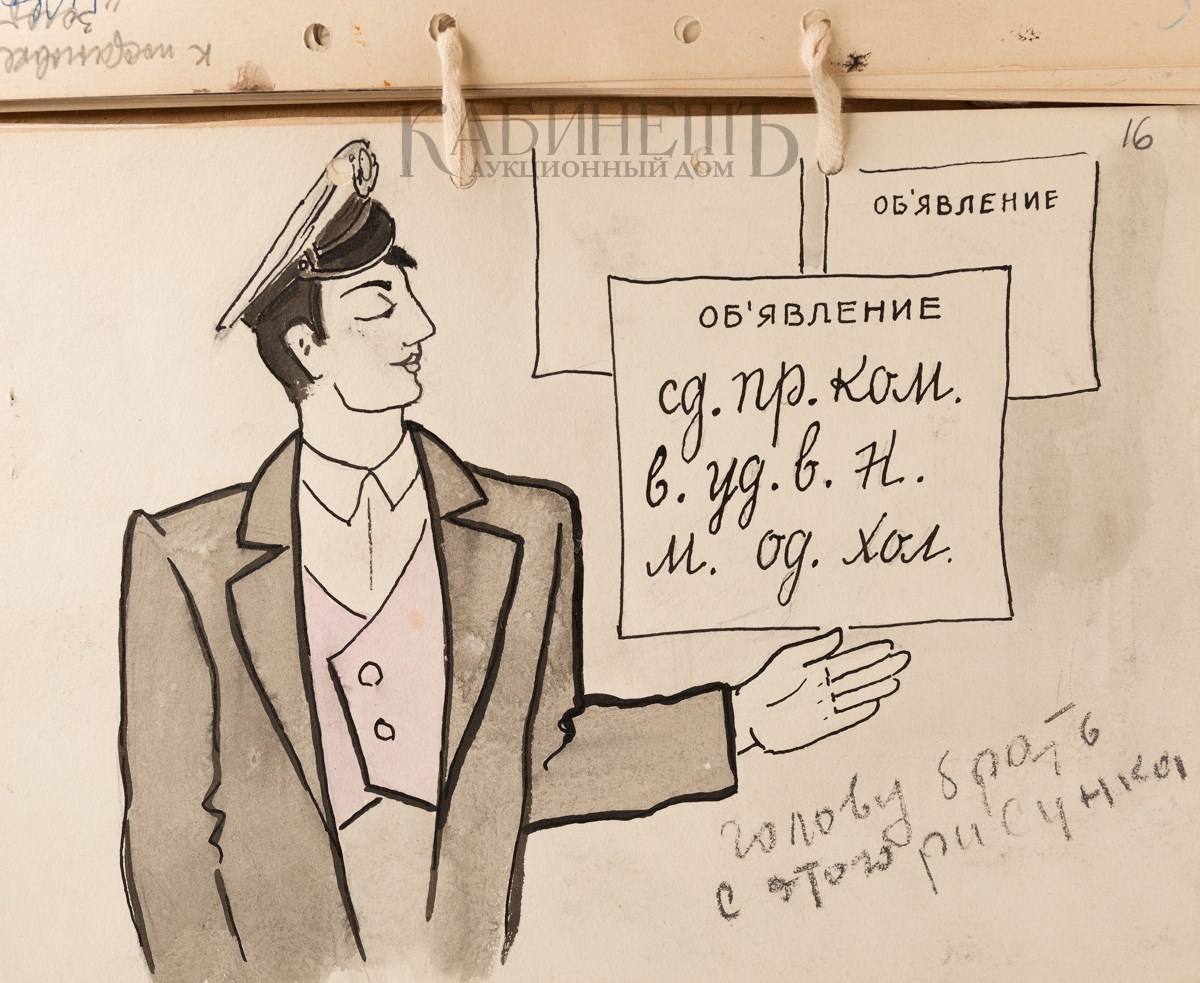 к постановке
"Золо
КАБИНЕТЪ
АУКЦИОННЫЙ ДОМ
16
ОБ'ЯВЛЕНИЕ
ОБ'ЯВЛЕНИЕ
сд. пр. ком.
в. уд. в. Н.
м. од. хол.
голову брать
с этого рисунка